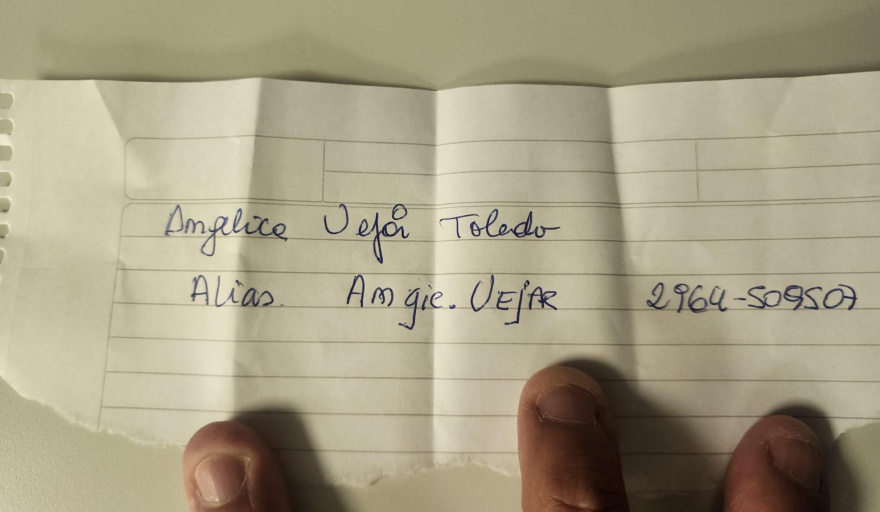 Angelica Vejar Toledo
Alias. Angie.VEjAR 2964-509507